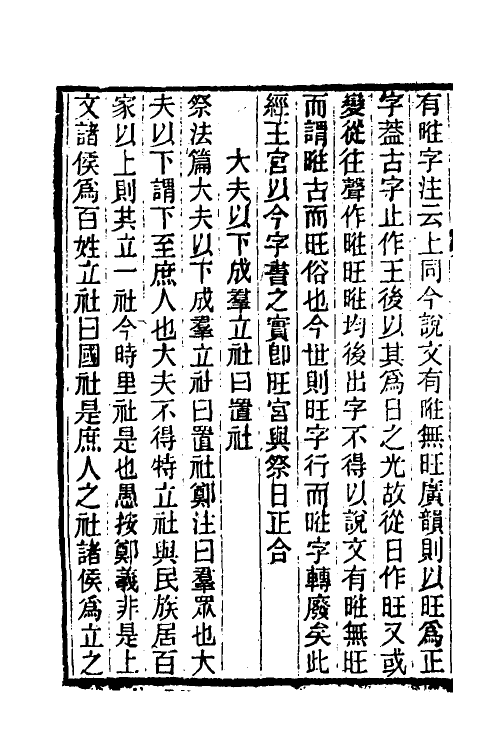 有暀字注云上同今說文有暀無旺廣韻則以旺爲正
字葢古字止作王後以其爲日之光故從日作旺又或
變從往聲作暀旺暀均後出字不得以說文有暀無旺
而謂暀古而旺俗也今世則旺字行而暀字轉廢矣此
經王宮以今字書之實卽旺宮與祭日正合
大夫以下成羣立社曰置社
祭法篇大夫以下成羣立社曰置社鄭注曰羣眾也大
夫以下謂下至庶人也大夫不得特立社與民族居百
家以上則共立一社今時里社是也愚按鄭義非是上
文諸侯爲百姓立社曰國社是庶人之社諸侯爲立之